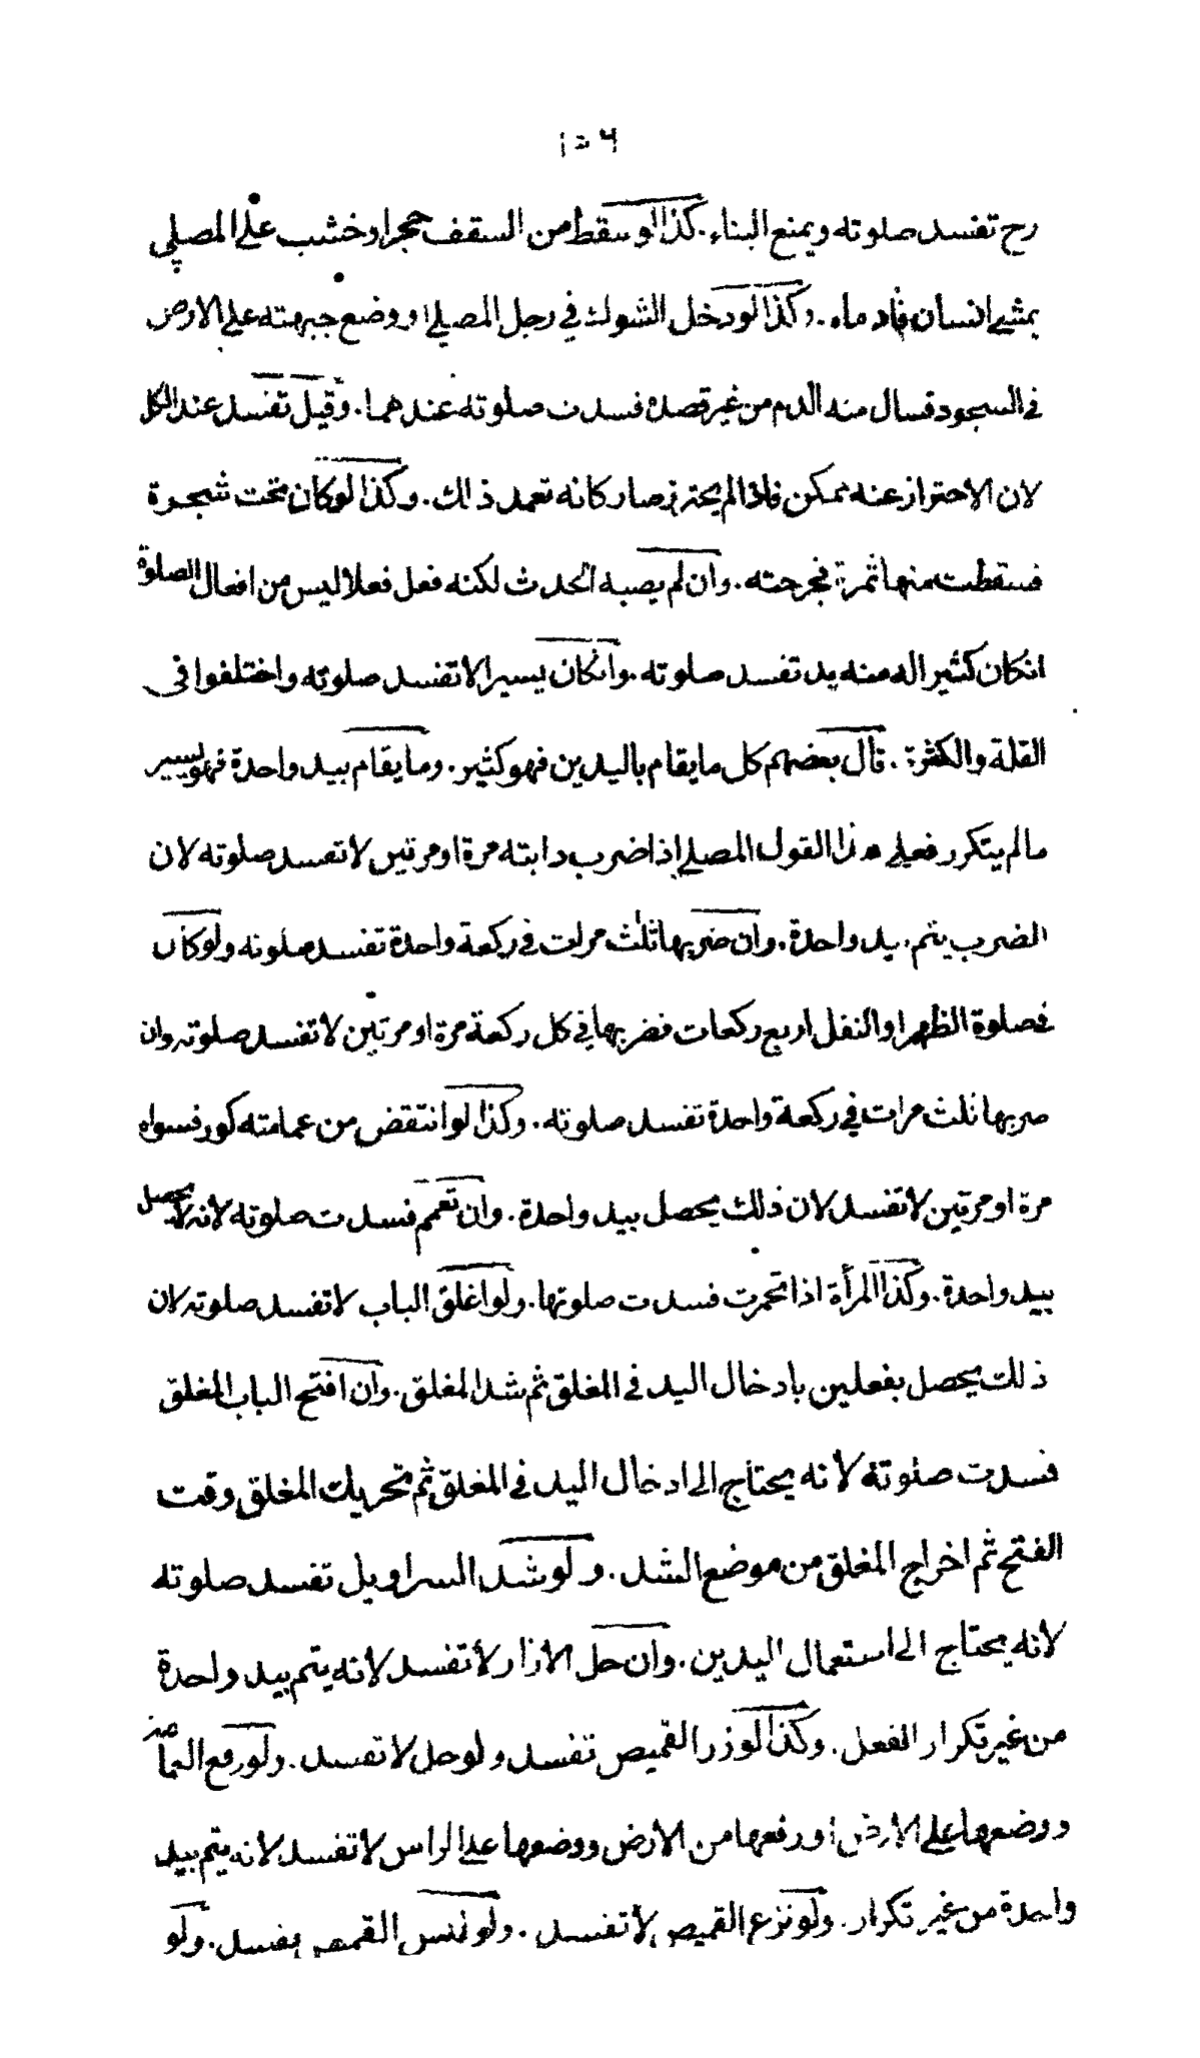 ١٥٦
رح تفسد صلوته ويمنع البناء. كذا لو سقط من السقف حجر او خشب على المصلي
بمشي انسان فادماه. وكذا لو دخل الشوك في رجل المصلي او وضع جبهته على الارض
في السجود فسال منه الدم من غير قصده فسدت صلوته عندهما. وقيل تفسد عند الكل
لان الاحتراز عنه ممكن فاذا لم يحترز صار كانه تعمد ذلك. وكذا لو كان تحت شجرة
فسقطت منها ثمرة فجرحته. وان لم يصبه الحدث لكنه فعل فعلا ليس من افعال الصلوة
انكان كثيرا له منه بد تفسد صلوته. وانكان يسيرا لا تفسد صلوته واختلفوا في
القلة والكثرة. قال بعضهم كل ما يقام باليدين فهو كثير. وما يقام بيد واحدة فهو يسير
ما لم يتكرر فعلى هذا القول المصلي اذا ضرب دابته مرة او مرتين لا تفسد صلوته لان
الضرب يتم بيد واحدة. وان ضربها ثلث مرات في ركعة واحدة تفسد صلوته ولو كان
في صلوة الظهر او النفل اربع ركعات فضربها في كل ركعة مرة او مرتين لا تفسد صلوته وان
ضربها ثلث مرات في ركعة واحدة تفسد صلوته. وكذا لو انتقض من عمامته كور فسواه
مرة او مرتين لا تفسد لان ذلك يحصل بيد واحدة. وان تعمم فسدت صلوته لانه لا يحصل
بيد واحدة. وكذا المرأة اذا تخمرت فسدت صلوتها. ولو اغلق الباب لا تفسد صلوته لان
ذلك يحصل بفعلين بادخال اليد في المغلق ثم شد المغلق. وان افتح الباب المغلق
فسدت صلوته لانه يحتاج الى ادخال اليد في المغلق ثم تحريك المغلق وقت
الفتح ثم اخراج المغلق من موضع الشد. ولو شد السراويل تفسد صلوته
لانه يحتاج الى استعمال اليدين. وان حل الازار لا تفسد لانه يتم بيد واحدة
من غير تكرار الفعل. وكذا لو زر القميص تفسد ولو حل لا تفسد. ولو رفع العمامة
ووضعها على الارض او رفعها من الارض ووضعها على الراس لا تفسد لانه يتم بيد
واحدة من غير تكرار. ولو نزع القميص لا تفسد. ولو لبس القميص تفسد. ولو